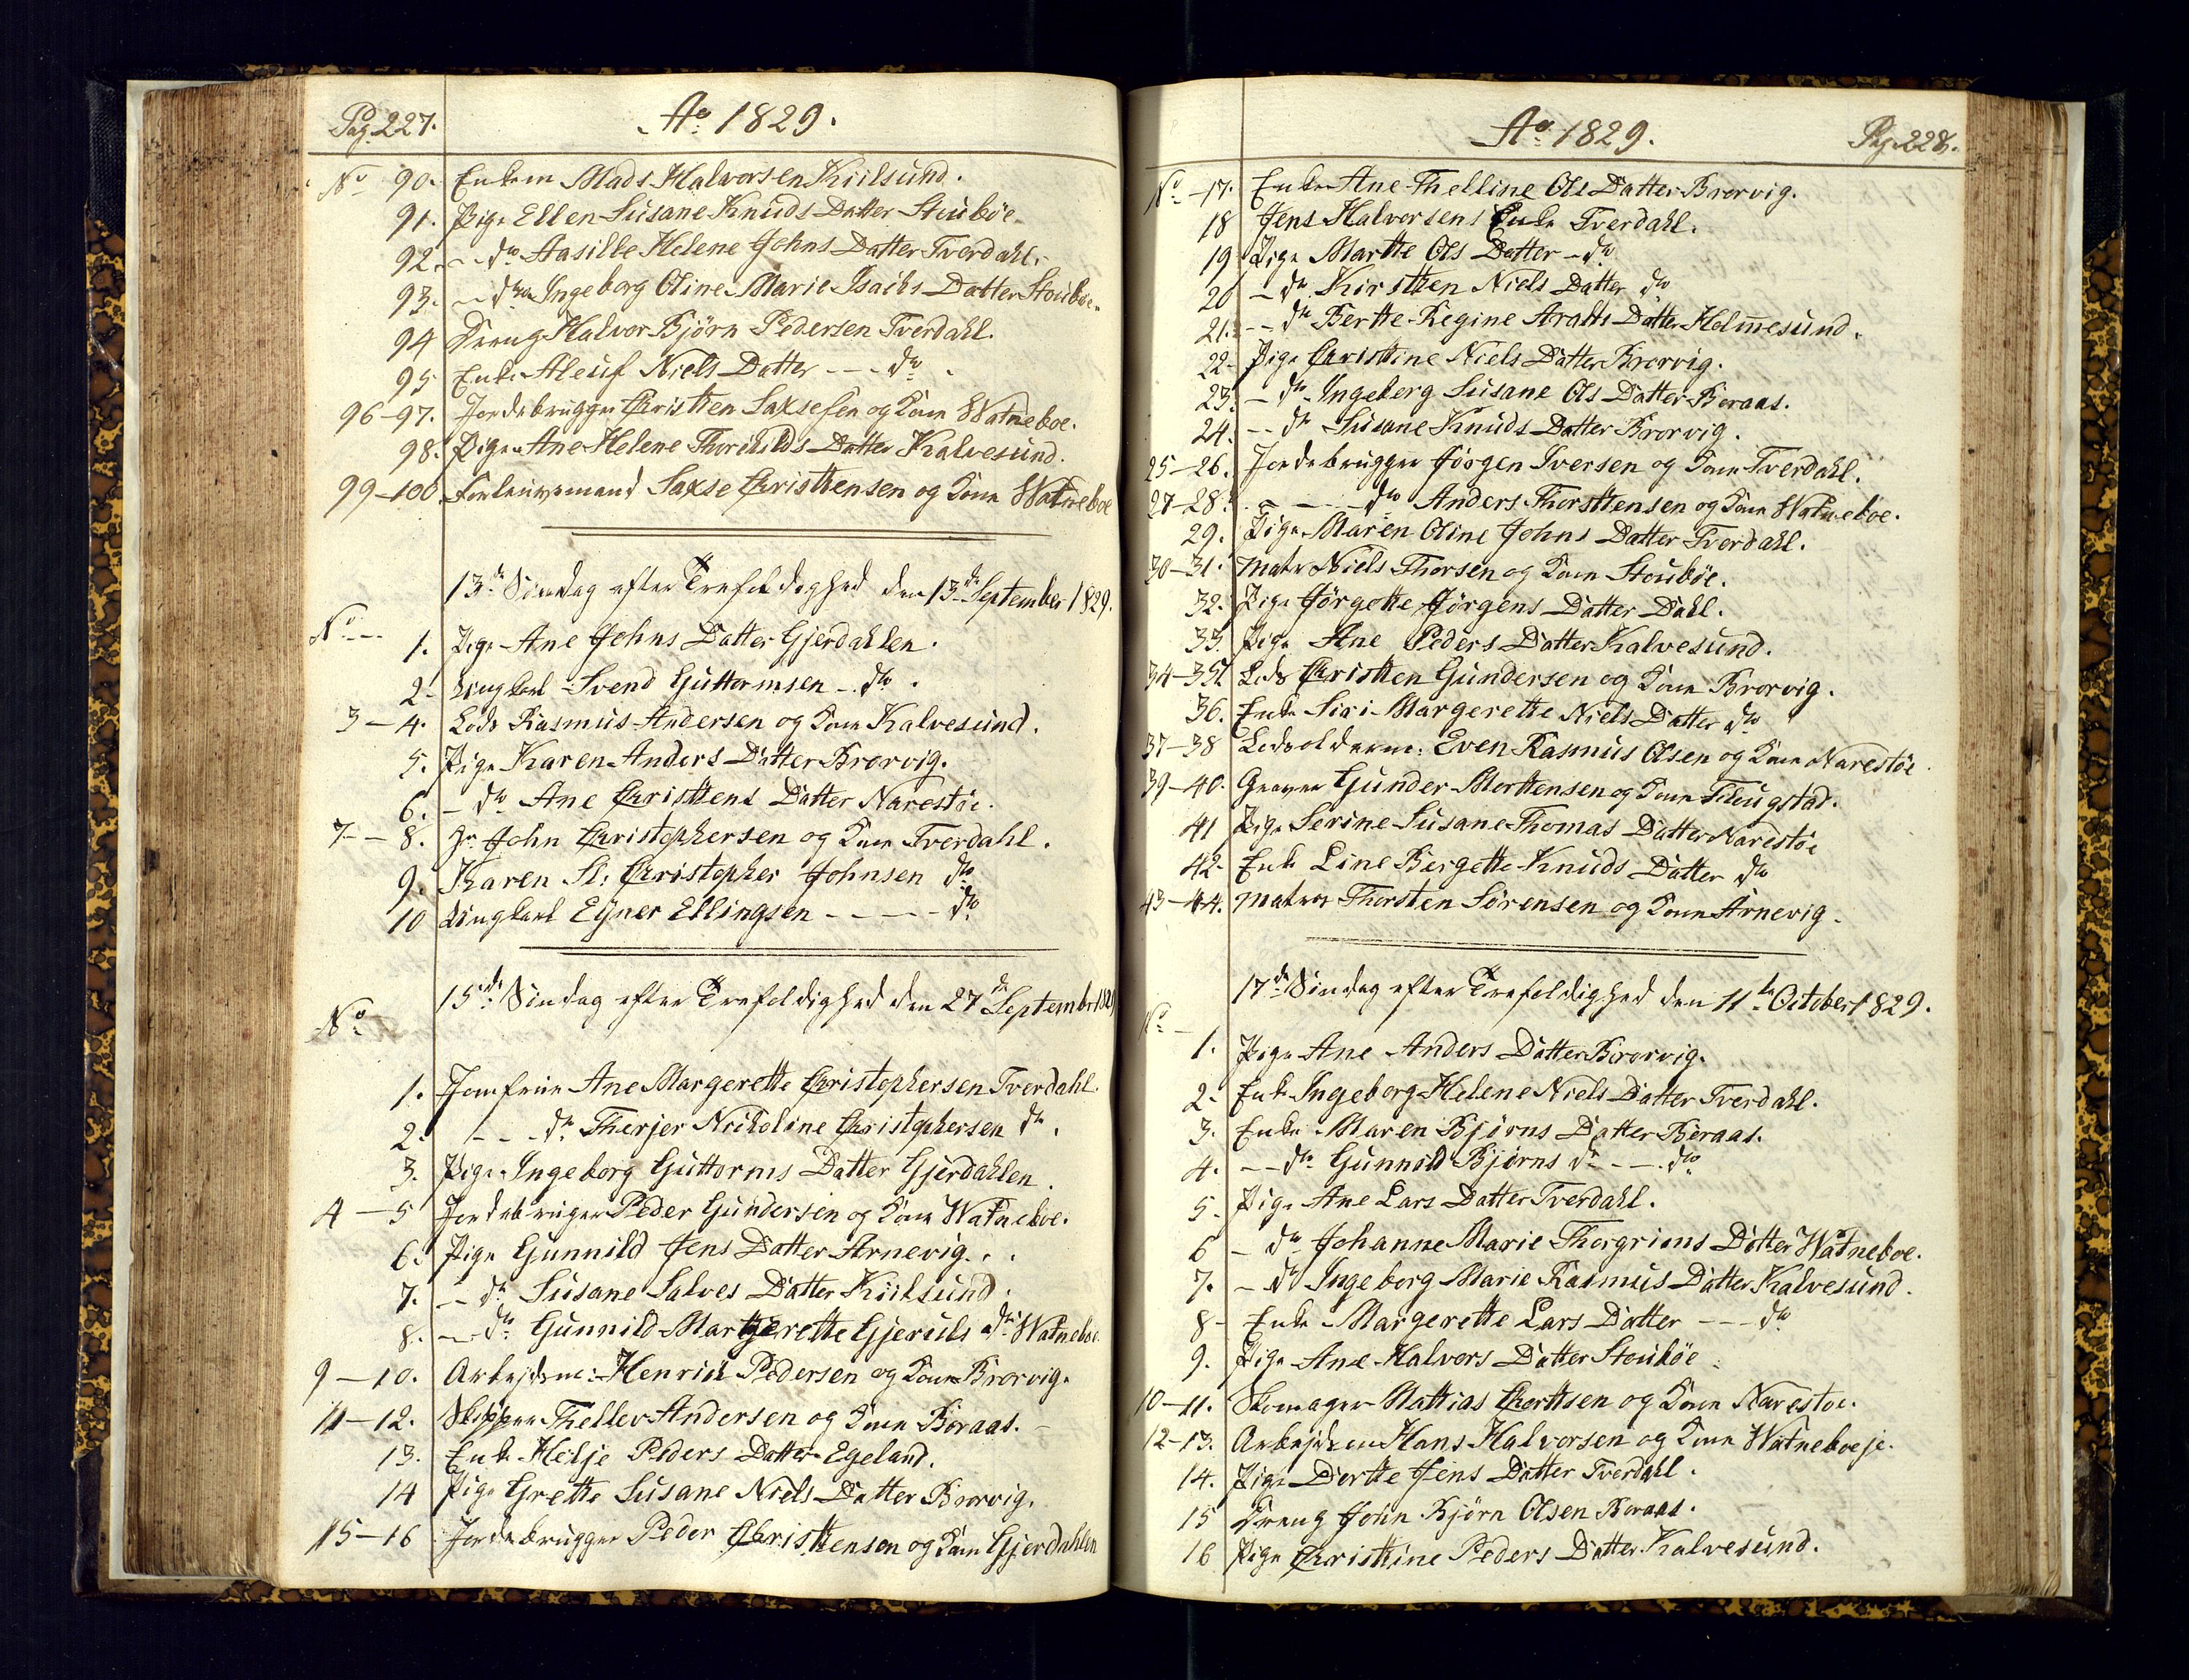 Pag. 227.
Ao 1829.
No 90. Enkem Mads Halvorsen Kiilsund.
91. Pige Ellen Susane Knuds Datter Stoubøe
92. -- do Aasille Helene Johns Datter Tverdahl.
93. -- do Ingeborg Oline Marie Isachs Datter Stoubøe
94 Dreng Halvor Bjørn Pedersen Tverdahl.
95 Enke Aleuf Niels Datter --- do
96-97. Jordebrugger Christen Saxesen og Kone Watneboe.
98. Pige Ane Helene Thorkilds Datter Kalvesund.
99-100 Forlangsmand Saxse Christensen og Kone Watneboe
13de Søndag efter Trefoldighed den 13de September 1829.
No --
1. Pige Ane Johns Datter Gjerdahlen.
2- Ungkarl Svend Guttormsen -- do.
3-4. Lods Rasmus Andersen og Kone Kalvesund.
5. Pige Karen Anders Datter Brorvig.
6. - do Ane Christens Datter Narestøe.
7--8. Hr. John Christophersen og Kone Tverdahl.
9. Karen Sl: Christopher Johnsen do
10 Ungkarl Ejner Ellingsen ----- do
15de Søndag efter Trefoldighed den 27de September 1829
No
1. Jomfrue Ane Margerette Christophersen Tverdahl.
2. --- do Therjer Nicholine Christophersen do.
3. Pige Ingeborg Guttorms Datter Gjerdahlen.
4-5 Jordebruger Peder Gundersen og Kone Watneboe.
6. Pige Gunnild Jens Datter Arnevig..
7. -- do Susane Salves Datter Kiilsund.
8. -- do Gunnild Margerette Gjeruls do Watneboe
9-10. Arbejdsm: Henrich Pedersen og Kone Brorvig.
11-12. Skipper Thellev Andersen og Kone Boraas.
13. Enke Helje Peders Datter Egeland.
14 Pige Grette Susane Niels Datter Brorvig.
15-16 Jordebrugger Peder Christensen og Kone Gjerdahlen
Ao 1829.
Pag. 228.
No -17. Enke Ane Thelline Ols Datter Brorvig.
18 Jens Halvorsens Enke Tverdahl.
19 Pige Marthe Ols Datter - do
20 - do Kirstten Niels Datter do
21. -- do Bertte Regine Aratts Datter Holmesund.
22- Pige Christine Niels Datter Brorvig.
23. - do Ingeborg Susane Ols Datter Boraas.
24. -- do Susane Knuds Datter Brorvig.
25-26. Jordebrugger Jørgen Iversen og Kone Tverdahl.
27-28. ---- do Anders Thorsttensen og Kone Watneboe.
29. Pige Maren Oline Johns Datter Tverdahl.
30-31. Matr Niels Thorsen og Kone Stoubøe.
32. Pige Jørgette Jørgens Datter Dahl.
33. Pige Ane Peders Datter Kalvesund.
34-35. Lods Christen Gundersen og Kone Brorvig.
36. Enke Siri Margerette Niels Datter do
37-38 Lodsolderm: Even Rasmus Olsen og Kone Narestöe
39-40. Graver Gunder Morttensen og Kone Flougstad.
41 Pige Serine Susane Thomas Datter Narestöe
42- Enke Line Bergette Knuds Datter do
43-44. Matros Thorsten Sörensen og Kone Arnevig.
17de Søndag efter Trefoldighed den 11te October 1829.
No -
1. Pige Ane Anders Datter Brorvig.
2- Enke Ingeborg Helene Niels Datter Tverdahl.
3. Enke Maren Bjørns Datter Boraas.
4. -- do Gunnild Bjørns do --- do
5. Pige Ane Lars Datter Tverdahl.
6 - do Johanne Marie Thorgrims Datter Watneboe.
7. - do Ingeborg Marie Rasmus Datter Kalvesund.
8- Enke Margerette Lars Datter --- do
9. Pige Ane Halvors Datter Stoubøe
10-11. Skomager Mattias Chorttsen og Kone Narestoe.
12-13. Arbejdsm Hans Halvorsen og Kone Watneboeje.
14. Pige Dortte Jens Datter Tverdahl.
15 Dreng John Bjørn Olsen Boraas.
16 Pige Christine Peders Datter Kalvesund.